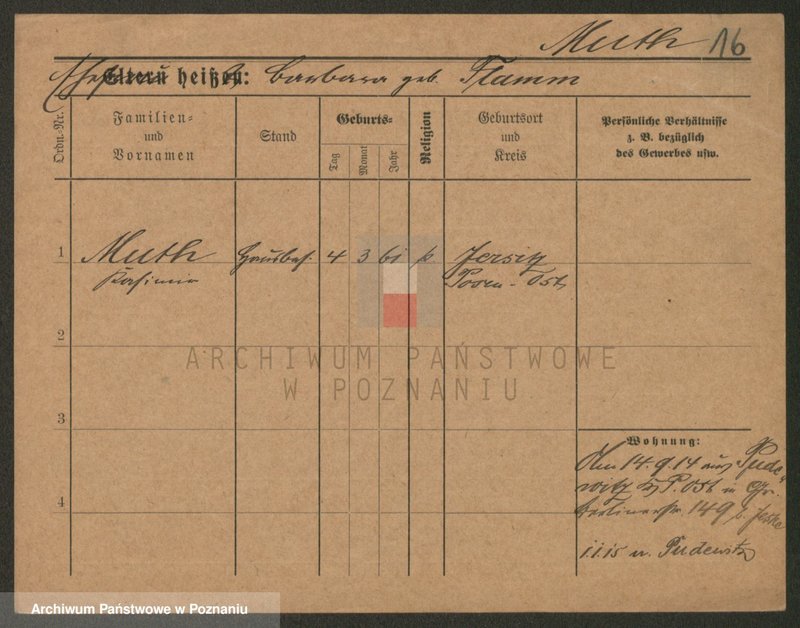 Muth 16
Eltern heißen: Barbara geb. Flamm
Ordn.-Nr.
Familien-
und
Vornamen
Stand
Geburts-
Tag
Monat
Jahr
Religion
Geburtsort
und
Kreis
Persönliche Verhältnisse
z. B. bezüglich
des Gewerbes usw.
1 Muth Hausbes. 4 3 61 k. Jersitz
Kasimir Posen-Ost
2
ARCHIWUM PAŃSTWOWE
W POZNANIU
3
Wohnung:
Am 14.9.14 aus Pude-
witz Kr. P. Ost in Gr.
Berlinerstr. 149 b. Jeske
4
1.1.15 n. Pudewitz
Archiwum Państwowe w Poznaniu